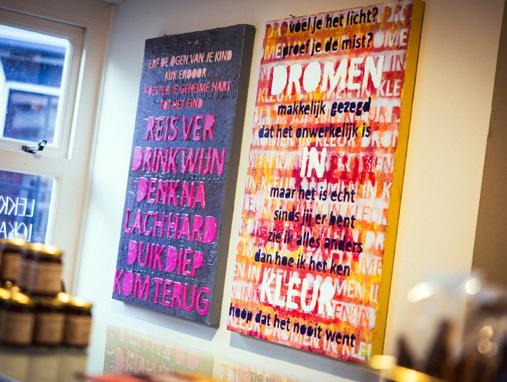 ERF DE OGEN VAN JE KIND
KIJK ERDOOR
KOESTER JE GEHEIME HART
TOT HET EIND
REIS VER
DRINK WIJN
DENK NA
LACH HARD
DUIK DIEP
KOM TERUG
voel je het licht?
proef je de mist?
DROMEN
makkelijk gezegd
dat het onwerkelijk is
IN
maar het is echt
sinds jij er bent
zie ik alles anders
dan hoe ik het ken
KLEUR
hoop dat het nooit went
LEKK
LOKA